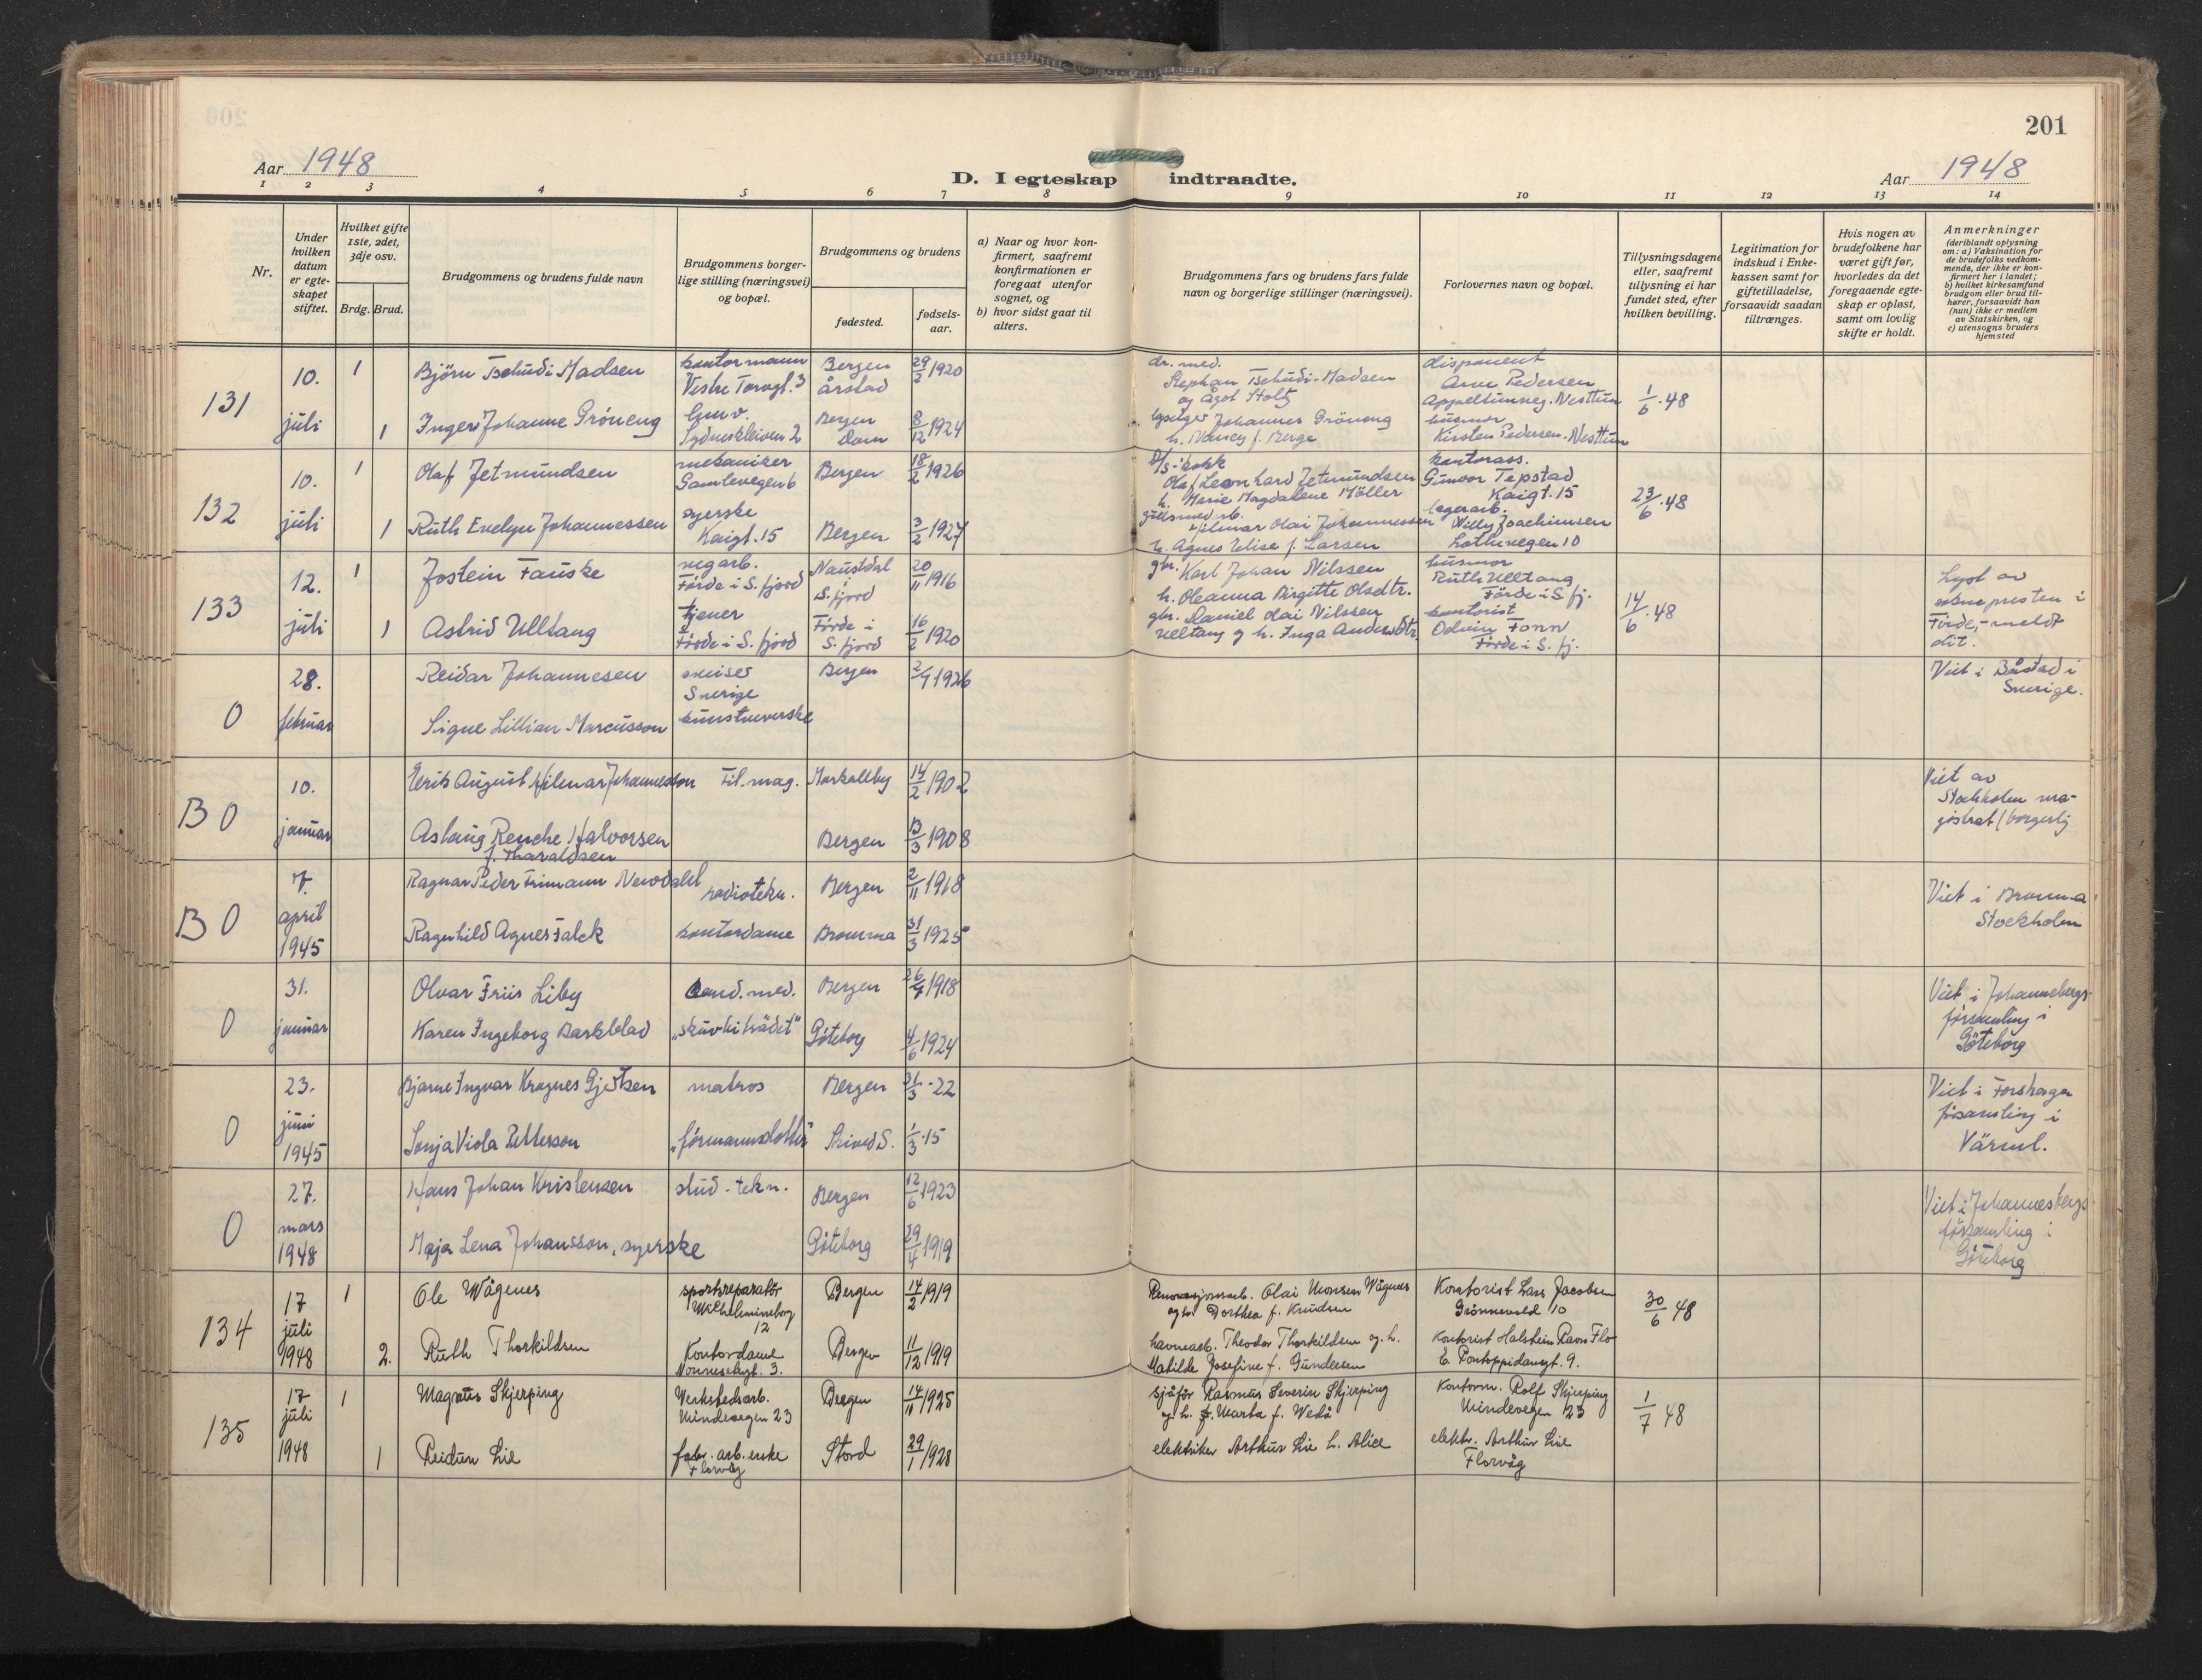 201
Aar 1948
D. I egteskap indtraadte.
Aar 1948
1 2 3 4 5 6 7 8 9 10 11 12 13 14
Nr.
Under hvilken datum er egteskapet stiftet.
Hvilket gifte 1ste, 2det, 3dje osv.
Brdg. Brud.
Brudgommens og brudens fulde navn
Brudgommens borgerlige stilling (næringsvei) og bopæl.
Brudgommens og brudens
fødested.
fødselsaar.
a) Naar og hvor konfirmert, saafremt konfirmationen er foregaat utenfor sognet, og
b) hvor sidst gaat til alters.
Brudgommens fars og brudens fars fulde navn og borgerlige stillinger (næringsvei).
Forlovernes navn og bopæl.
Tillysningsdagene eller, saafremt tillysning ei har fundet sted, efter hvilken bevilling.
Legitimation for indskud i Enkekassen samt for giftetilladelse, forsaavidt saadan tiltrænges.
Hvis nogen av brudefolkene har været gift før, hvorledes da det foregaaende egteskap er opløst, samt om lovlig skifte er holdt.
Anmerkninger
(deriblandt oplysning om: a) Vaksination for de brudefolks vedkommende, der ikke er konfirmert her i landet; b) hvilket kirkesamfund brudgom eller brud tilhører, forsaavidt han (hun) ikke er medlem av Statskirken, og c) utensogns bruders hjemsted
131 10. juli
1 Björn Tschudi Madsen kontormann Vestre Torvgt. 3 Bergen årstad 29/2 1920
dr. med. Stephan Tschudi-Madsen og Ågot Stoltz
disponent Arne Pedersen Nesttun
1/6.48
1 Inger Johanne Gröneng Sydneskleiven 2 Bergen Dom 8/12 1924
Johannes Gröneng h. Nancy f. Berge
husmor Kirsten Pedersen. Nesttun
132 10. juli
1 Olaf Jetmundsen mekaniker Gamlevegen 6 Bergen 18/2 1926
Olaf Leonhard Jetmundsen h. Marie Magdalene Möller
kontorass. Gunvor Tepstad Kaigt. 15
23/6.48
1 Ruth Evelyn Johannessen syerske Kaigt. 15 Bergen 3/2 1927
Hilmar Olai Johannessen h. Agnes Elise f. Larsen
lagerarb. Willy Joachimsen Lothevegen 10
133 12. juli
1 Jostein Fauske vegarb. Förde i S. fjord Naustdal i S. fjord 20/11 1916
gbr. Karl Johan Nilssen h. Oleanna Birgitte Olsdtr.
husmor Ruth Ulltang Förde i S. fj.
14/6.48
Lyst av soknepresten i Förde, - meldt dit.
1 Astrid Ulltang Förde i S. fjord Förde i S. fjord 16/2 1920
gbr. Daniel Olai Nilssen Ulltang og h. Inga Andersdtr.
kontorist Odvin Fonn Förde i S. fj.
0 28. februar
Reidar Johannesen Sverige Bergen 2/4 1926
Viet i Båstad i Sverige.
Signe Lillian Marcusson kunstveverske
B 0 10. januar
Erik August Hilmar Johannesson Fil. mag. 14/2 1902
Viet av Stockholm magistrat (borgerlig
Aslaug Renche Halvorsen f. Tharaldsen Bergen 13/3 1908
B 0 7. april 1945
Ragnar Peder Frimann Newdahl radiotekn. Bergen 2/11 1918
Viet i Bromma Stockholm
Ragnhild Agnes Falck kontordame Bromma 31/3 1925
0 31. januar
Olvar Friis Liby Cand. med. Bergen 26/4 1918
Viet i Johannebergs församling i Göteborg
Karen Ingeborg Barkblad Göteborg 4/6 1924
0 23. juni 1945
Bjarne Ingvar Krognes Gjertsen matros Bergen 31/3-22
Viet i Forshaga församling i Värml.
Sonja Viola Pettersson 1/3.15
0 27. mars 1948
Hans Johan Kristensen stud. tekn. Bergen 12/6 1923
Viet i Johannesbergs församling i Göteborg
Maja Lena Johansson, syerske Göteborg 29/4 1919
134 17 juli 1948
1 Ole Wågenes sportsreparatör Wilhelmineborg 12 Bergen 14/2 1919
Olai Monsen Wågenes og h. Dorthea f. Knudsen
Kontorist Lars Jacobsen Grönnevold 10
30/6 48
2. Ruth Thorkildsen Kontordame Nonnesetergt. 3. Bergen 11/12 1919
havnearb. Theodor Thorkildsen og h. Matilde Josefine f. Gundersen
Kontorist Halstein Ravn Flo E Pontoppidansgt. 9.
135 17 juli 1948
1 Magnus Skjerping Verkstedsarb. Mindevegen 23 Bergen 14/11 1925
sjåför Rasmus Severin Skjerping og h. Marta f. Wedå
Kontorm. Rolf Skjerping Mindevegen 23
1/7 48
1 Reidun Lie fabr. arb. enke Florvåg Stord 29/1 1928
elektriker Arthur Lie h. Alice
elektr. Arthur Lie Florvåg